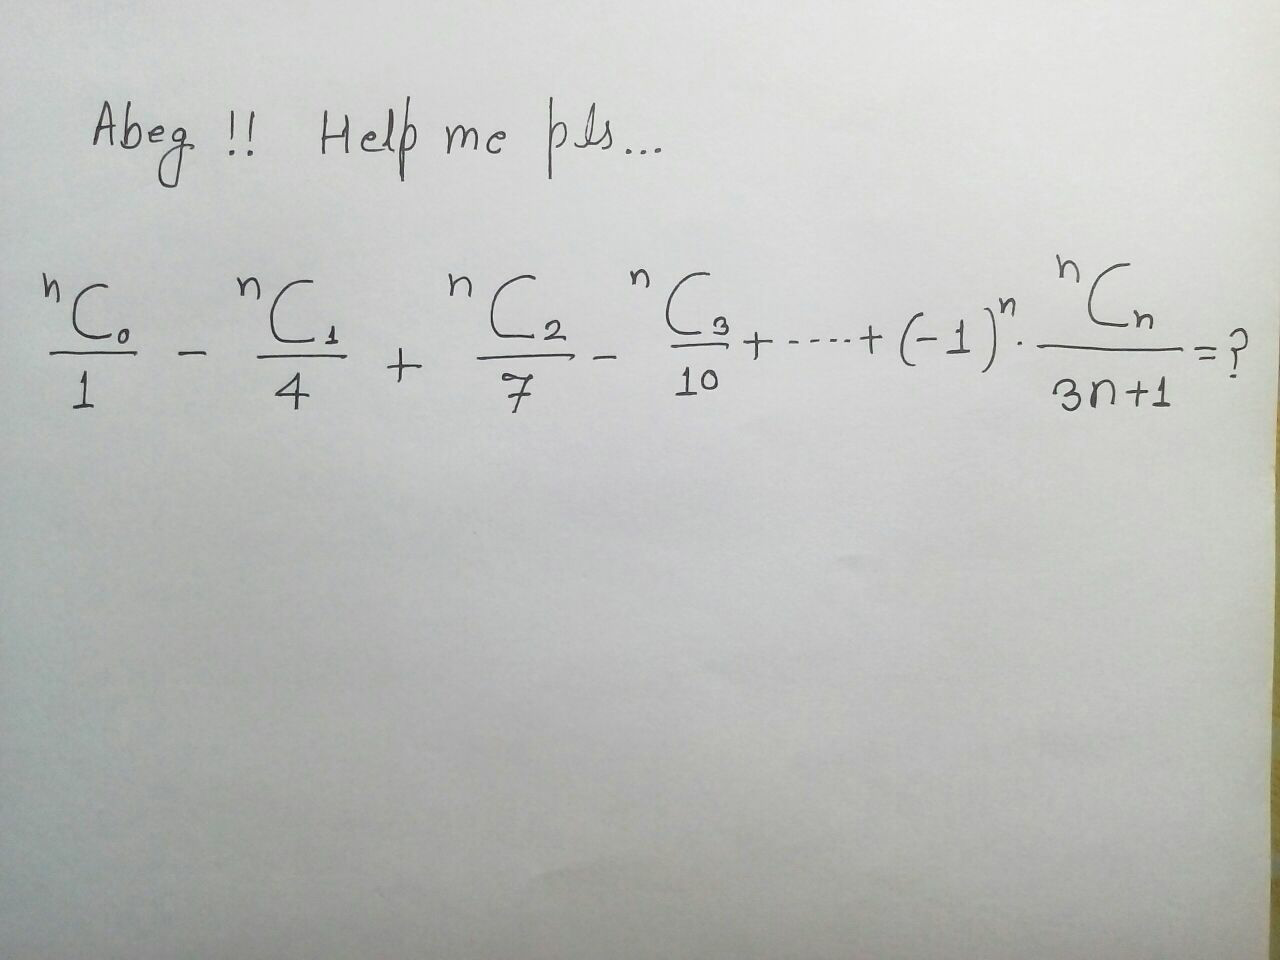 Abeg !! Help me pls...
ⁿC₀/1 - ⁿC₁/4 + ⁿC₂/7 - ⁿC₃/10 + ----- + (-1)ⁿ · ⁿCₙ/3n+1 = ?